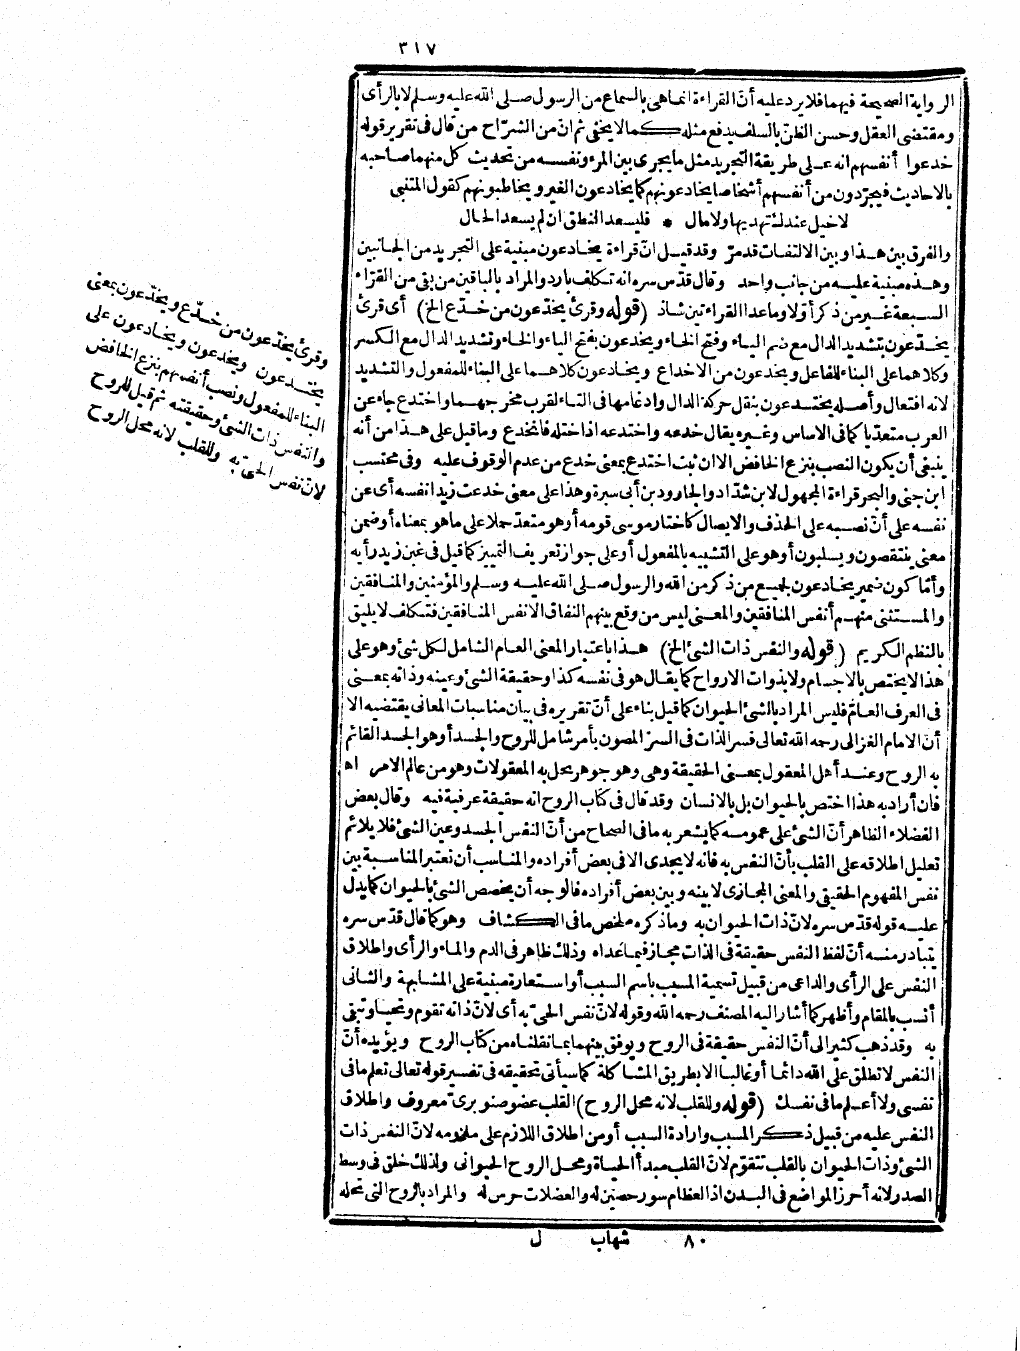 ٣١٧
الرواية الصحيحة فيهما فلا يرد عليه أنّ القراءة انما هى بالسماع من الرسول صلى الله عليه وسلم لا بالرأى
ومقتضى العقل وحسن الظنّ بالسلف يدفع مثله كما لا يخفى ثم انّ من الشرّاح من قال فى تقرير قوله
خدعوا أنفسهم انه على طريقة التجريد مثل ما يجرى بين المرء ونفسه من تحديث كل منهما صاحبه
بالاحاديث فيجرّدون من أنفسهم أشخاصا يخادعونهم كما يخادعون الغير ويخاطبونهم كقول المتنبى
لا خيل عندك تهديها ولا مال * فليسعد النطق ان لم يسعد الحال
والفرق بين هذا وبين الالتفات قد مرّ وقد قيل انّ قراءة يخادعون مبنية على التجريد من الجانبين
وهذه مبنية عليه من جانب واحد وقال قدّس سره انه تكلف بارد والمراد بالباقين من بقى من القرّاء
السبعة غير من ذكر أوّلا وما عدا القراءتين شاذ (قوله وقرئ يخدّعون من خدّع الخ) أى قرئ
يخدّعون بتشديد الدال مع ضم الياء وفتح الخاء ويخدعون بفتح الياء والخاء وتشديد الدال مع الكسر
وكلاهما على البناء للفاعل ويخدعون من الاخداع ويخادعون كلاهما على البناء للمفعول والتشديد
لانه افتعال وأصله يختدعون بنقل حركة الدال وادغامها فى التاء لقرب مخرجهما واختدع جاء عن
العرب متعدّيا كما فى الاساس وغيره يقال خدعه واختدعه اذا ختله فانخدع وما قيل على هذا من أنه
ينبغى أن يكون النصب بنزع الخافض الا ان ثبت اختدع بمعنى خدع من عدم الوقوف عليه وفى محتسب
ابن جنى والبحر قراءة المجهول لابن شدّاد والجارود بن أبى سبرة وهذا على معنى خدعت زيدا نفسه أى عن
نفسه على أنّ نصبه على الحذف والايصال كاختار موسى قومه أو هو متعدّ حملا على ما هو بمعناه أو ضمن
معنى ينتقصون ويسلبون أو هو على التشبيه بالمفعول أو على جواز تعريف التمييز كما قيل فى غبن زيد رأيه
وأمّا كون ضمير يخادعون لجميع من ذكر من الله والرسول صلى الله عليه وسلم والمؤمنين والمنافقين
والمستثنى منهم أنفس المنافقين والمعنى ليس من وقع بينهم النفاق الا نفس المنافقين فتكلف لا يليق
بالنظم الكريم (قوله والنفس ذات الشئ الخ) هذا باعتبار المعنى العام الشامل لكل شئ وهو على
هذا لا يختص بالاجسام ولا بذوات الارواح كما يقال هو فى نفسه كذا وحقيقة الشئ وعينه وذاته بمعنى
فى العرف العامّ فليس المراد بالشئ الحيوان كما قيل بناء على أنّ تقريره فى بيان مناسبات المعانى يقتضيه الا
أنّ الامام الغزالى رحمه الله تعالى فسر الذات فى السرّ المصون بأمر شامل للروح والجسد أو هو الجسد القائم
به الروح وعند أهل المعقول بمعنى الحقيقة وهى وهو جوهر يحل به المعقولات وهو من عالم الامر اه
فان أراد به هذا اختص بالحيوان بل بالانسان وقد قال فى كتاب الروح انه حقيقة عرفية فيه وقال بعض
الفضلاء الظاهر أنّ الشئ على عمومه كما يشعر به ما فى الصحاح من أنّ النفس الجسد وعين الشئ فلا يلائم
تعليل اطلاقه على القلب بأنّ النفس به فانه لا يجدى الا فى بعض أفراده والمناسب أن تعتبر المناسبة بين
نفس المفهوم الحقيقى والمعنى المجازى لا بينه وبين بعض أفراده فالوجه أن يخصص الشئ بالحيوان كما يدل
عليه قوله قدّس سره لانّ ذات الحيوان به وما ذكره ملخص ما فى الكشاف وهو كما قال قدّس سره
يتبادر منه أنّ لفظ النفس حقيقة فى الذات مجاز فيما عداه وذلك ظاهر فى الدم والماء والرأى واطلاق
النفس على الرأى والداعى من قبيل تسمية المسبب باسم السبب أو استعارة مبنية على المشابهة والثانى
أنسب بالمقام وأظهر كما أشار اليه المصنف رحمه الله وقوله لانّ نفس الحىّ به أى لانّ ذاته تقوم وتحيا وتبقى
به وقد ذهب كثير الى أنّ النفس حقيقة فى الروح ويوفق بينهما بما نقلناه من كتاب الروح ويؤيده أنّ
النفس لا تطلق على الله دائما أو غالبا الا بطريق المشاكلة كما سيأتى تحقيقه فى تفسير قوله تعالى تعلم ما فى
نفسى ولا أعلم ما فى نفسك (قوله وللقلب لانه محل الروح) القلب عضو صنوبرىّ معروف واطلاق
النفس عليه من قبيل ذكر المسبب وارادة السبب أو من اطلاق اللازم على ملزومه لانّ النفس ذات
الشئ وذات الحيوان بالقلب تتقوّم لانّ القلب مبدأ الحياة ومحل الروح الحيوانى ولذلك خلق فى وسط
الصدر لانه أحرز المواضع فى البدن اذ العظام سور حصين له والعضلات حرس له والمراد بالروح التى تحله
وقرئ يخدّعون من خدّع ويخدّعون بمعنى
يختدعون ويخدعون ويخادعون على
البناء للمفعول ونصب أنفسهم بنزع الخافض
والنفس ذات الشئ وحقيقته ثم قيل للروح
لانّ نفس الحىّ به وللقلب لانه محل الروح
٨٠ شهاب ل